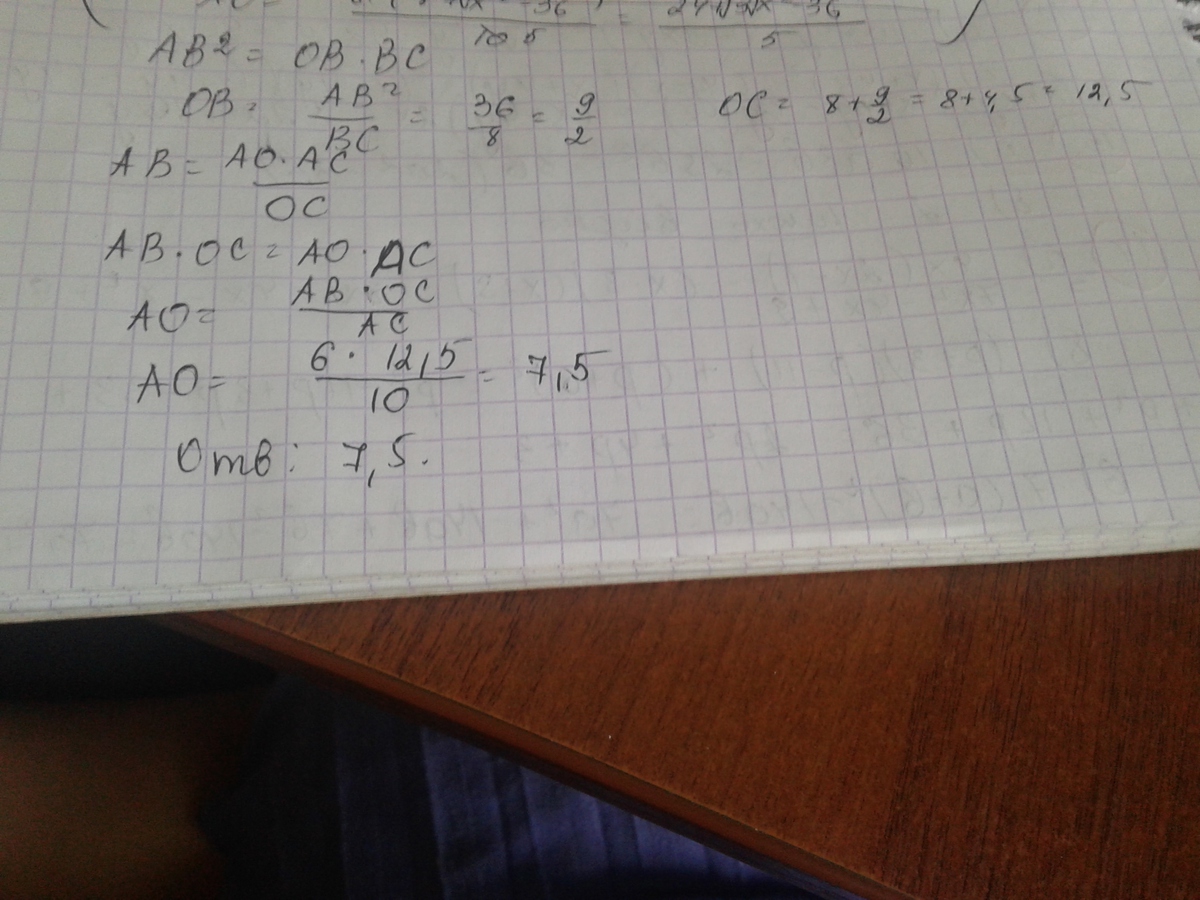 AB² = OB · BC
OB = AB²/BC = 36/8 = 9/2 OC = 8 + 9/2 = 8 + 4,5 = 12,5
AB = AO · AC/OC
AB · OC = AO · AC
AO = AB · OC/AC
AO = 6 · 12,5/10 = 7,5
Отв: 7,5.